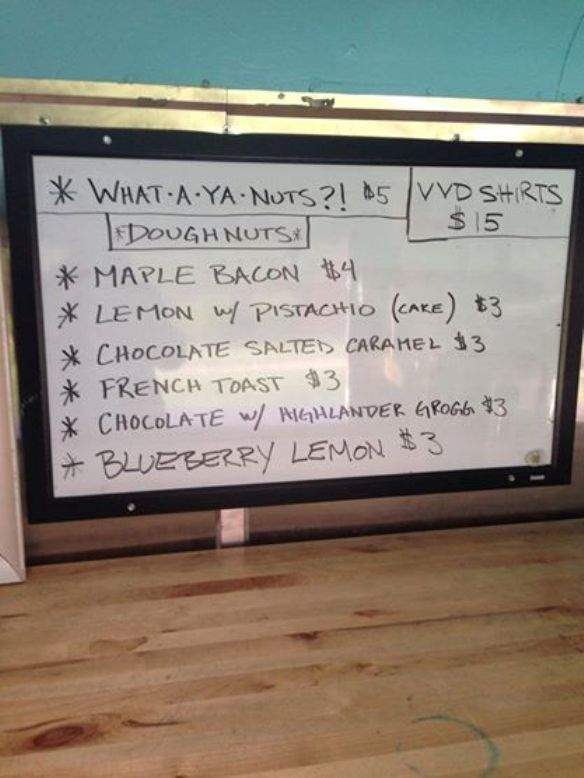 * WHAT·A·YA·NUTS?! $5
VVD SHIRTS
$15
*DOUGHNUTS*
* MAPLE BACON $4
* LEMON w/ PISTACHIO (CAKE) $3
* CHOCOLATE SALTED CARAMEL $3
* FRENCH TOAST $3
* CHOCOLATE w/ HIGHLANDER GROGG $3
* BLUEBERRY LEMON $3